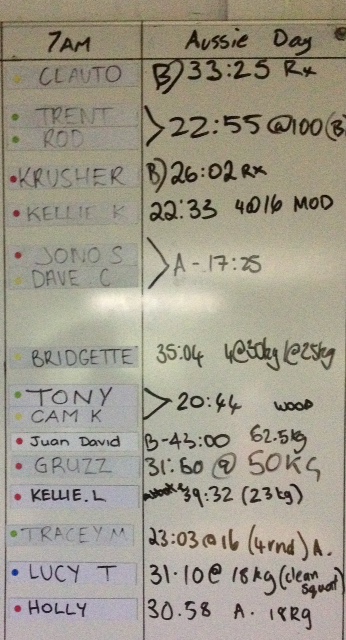 7AM Aussie Day
CLAUTO B) 33:25 Rx
TRENT
ROD > 22:55 @100 (B
KRUSHER B) 26:02 Rx
KELLIE K 22:33 4@16 MOD
JONO S
DAVE C > A - 17:25
BRIDGETTE 35:04 4@30kg 1@25kg
TONY
CAM K > 20:44 WOOD
Juan David B-43:00 62.5kg
GRUZZ 31:50 @ 50KG
KELLIE.L 39:32 (23kg)
TRACEY M 23:03@16 (4rnd) A.
LUCY T 31.10@ 18kg (clean
squat)
HOLLY 30.58 A. 18Kg